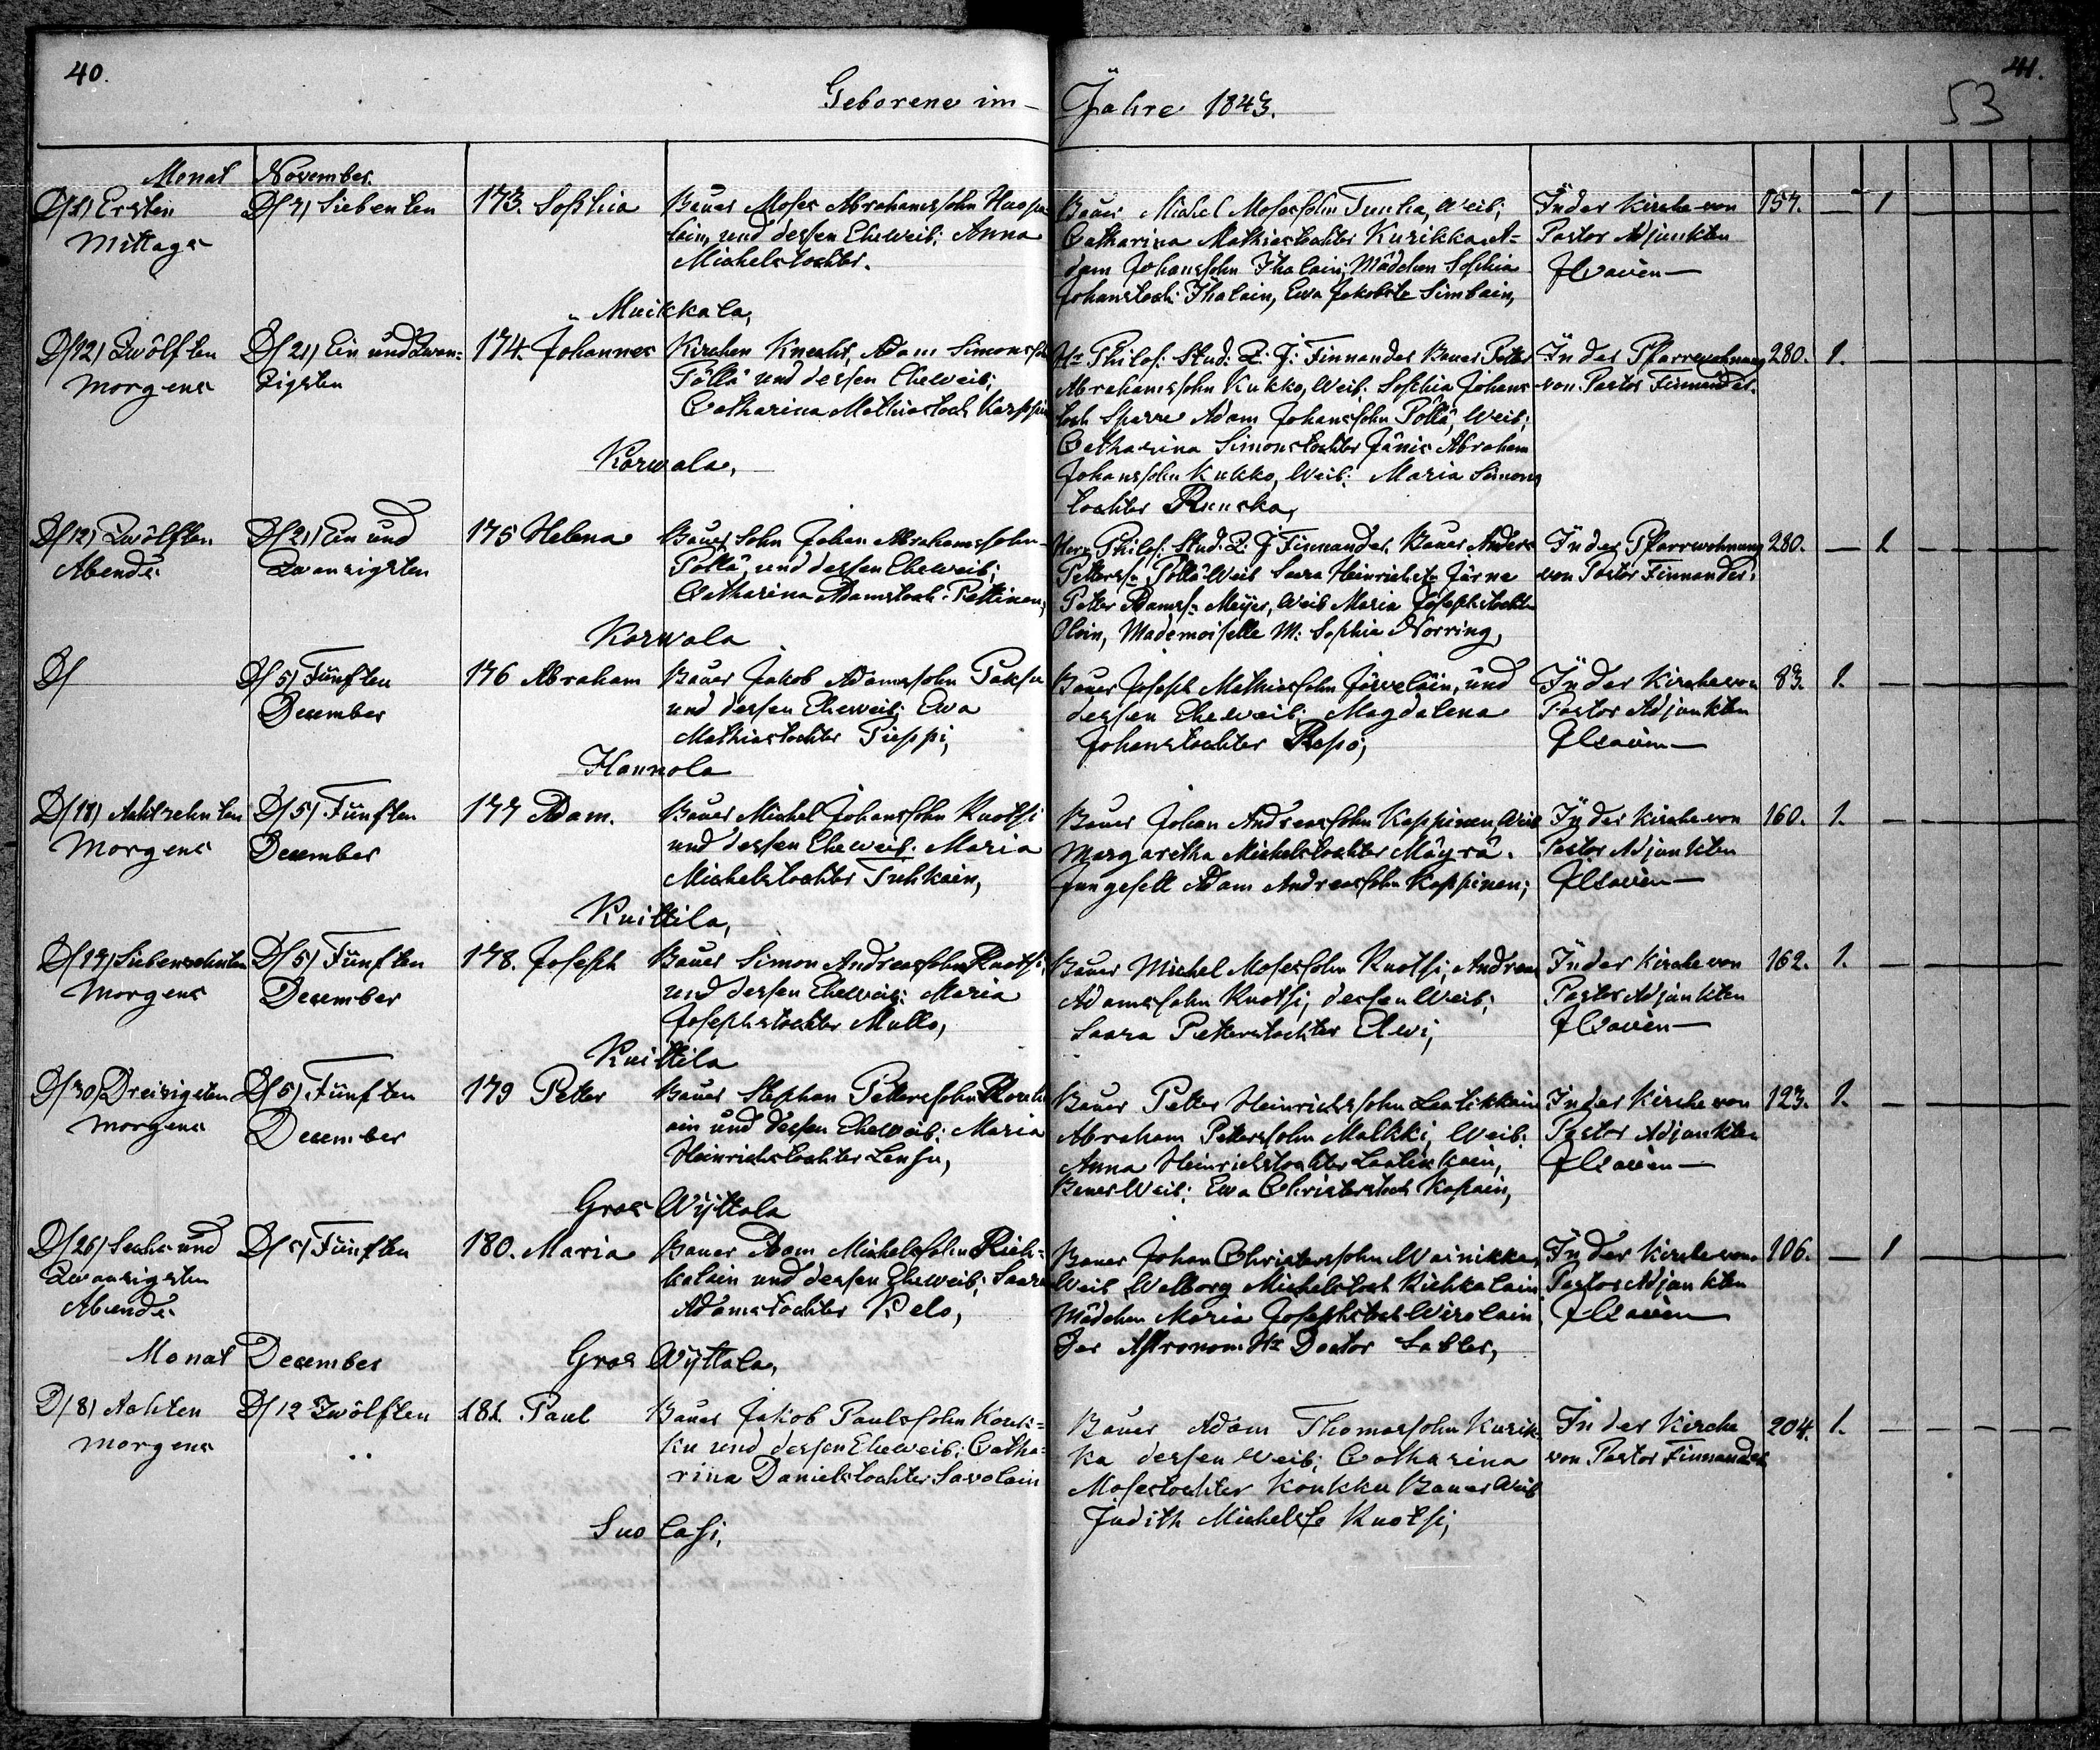 40.
41.
53
Geborene im Jahre 1843.
Monat November.
D/1/ Ersten
Mittags
D/7/ Siebenten
173. Sophia
Bauer Moses Abrahamssohn Huopa
lain, und dessen Eheweib; Anna
Michelstochter.
Muikkala,
Bauer Michel Mosessohn Tunka, Weib;
Catharina Mathiastochter Kurikka A-
dam Johanssohn Ihalain; Mädchen Sophia
Johanstoch: Ihalain, Ewa Jakobste Simbain,
In der Kirche von
Pastor Adjunkten
157. — 1
D/12/ Zwölften
Morgens
D/21/ Ein und Zwan=
zigsten
174. Johannes
Kirchen Knecht, Adam Simonssohn
Pöllä und dessen Eheweib;
Catharina Mathiastoch Karppin
Korwala,
Hr Philos: Stud: Z: J: Finnander Bauer Peter
Abrahamssohn Kukko, Weib: Sophia Johans
toch Sparre Adam Johanssohn Pöllä, Weib;
Catharina Simonstochter Jänis Abraham
Johanssohn Kukko, Weib: Maria Simons
tochter Ruuska,
In der Pfarrwohnung
von Pastor Finnander.
280. 1.
D/12/ Zwölften
Abends
D/21/ Ein und
Zwanzigsten
175 Helena
Bauer Sohn Johan Abrahamssohn
Pöllä, und dessen Eheweib;
Catharina Adamstoch: Pettinen,
Korwala
Herr Philos: Stud: Z: J: Finnander, Bauer Anders
Petterss: Pöllä Weib Saara Heinrichste Järne
Petter Adamss: Meyer, Weib Maria Josephstochte
Olain, Mademoiselle M: Sophia Norring,
In der Pfarrwohnung
von Pastor Finnander:
280. — 1
D/
D/5/ Fünften
December
176 Abraham
Bauer Jakob Adamssohn Paksu
und dessen Eheweib; Ewa
Mathiastochter Pieppi,
Hannola
Bauer Joseph Mathiassohn Järveläin, und
dessen Eheweib; Magdalena
Johanstochter Repo,
In der Kirche von
Pastor Adjunkten
83. 1.
D/18/ Achtzehnten
Morgens
D/5/ Fünften
December
177 Adam.
Bauer Michel Johanssohn Ruotsi
und dessen Eheweib: Maria
Michelstochter Tuhkain,
Knittila,
Bauer Johan Andreassohn Kappinen, Weib
Margaretha Michelstochter Mäyrä.
Jungesell Adam Andreassohn Kappinen;
In der Kirche von
Pastor Adjunkten
160. 1.
D/17/ Siebenzehnten
Morgens
D/5/ Fünften
December
178. Joseph
Bauer Simon Andreassohn Ruotsi
und dessen Eheweib: Maria
Josephstochter Mullo,
Knittila
Bauer Michel Mosessohn Ruotsi, Andreas
Adamssohn Ruotsi, dessen Weib;
Saara Petterstochter Elwi,
In der Kirche von
Pastor Adjunkten
162. 1.
D/30/ Dreisigsten
Morgens
D/5/ Fünften
December
179 Petter
Bauer Stephan Petterssohn
ain und dessen Eheweib: Maria
Heinrichstochter Lensu,
Gros Wyttala
Bauer Petter Heinrichssohn Laatikkain
Abraham Petterssohn Malkki, Weib.
Anna Heinrichstochter Laatikkain,
Bauer Weib: Ewa Christerstoch Kapain,
In der Kirche von
Pastor Adjunkten
123. 1.
D/26/ Sechs und
Zwanzigsten
Abends
D/5/ Fünften
180. Maria
Bauer Adam Michelssohn Rieh=
kalain und dessen Eheweib; Saara
Adamstochter Kelo,
Gros Wyttala,
Bauer Johan Christerssohn Wainikka,
Weib Walborg Michelstoch Riehkalain
Mädchen Maria Josephstoch Wirolain
Der Astronom Hr Doctor Sabler,
In der Kirche von
Pastor Adjunkten
106. — 1
Monat December
D/8/ Achten
Morgens
D/12 Zwölften
181. Paul
Bauer Jakob Paulssohn Kouk=
ku und dessen Eheweib: Catha=
rina Danielstochter Savolain
Suolahsi,
Bauer Adam Thomassohn Kurik
ka dessen Weib; Catharina
Mosestochter Koukku Bauer Weib
Judith Michelste Ruotsi,
In der Kirche
von Pastor Finnander
204. 1.